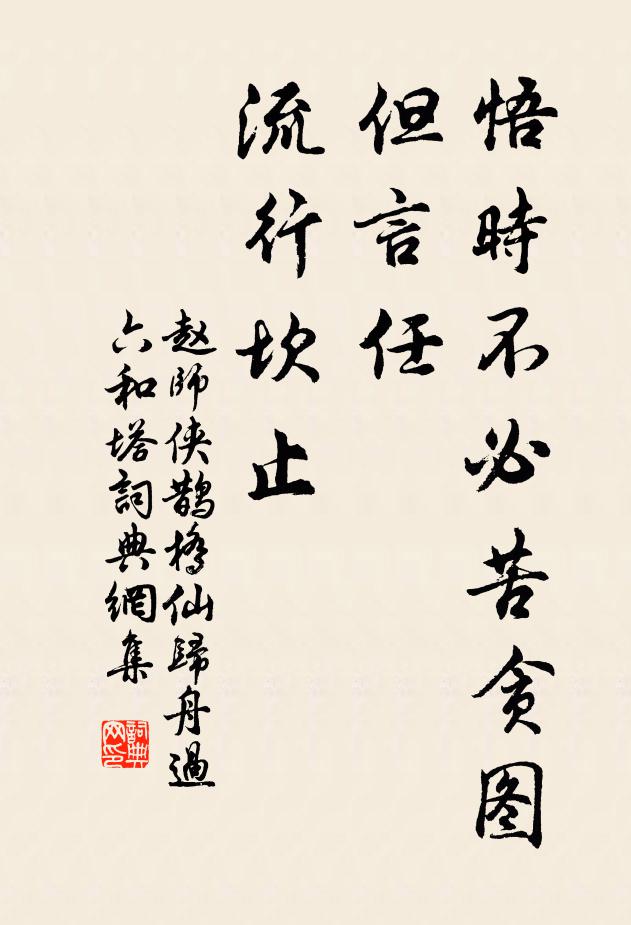 悟時不必苦貪图
但言任
流行坎止
赵師侠鵲橋仙歸舟過
六和塔詞典網集
詞典
网印